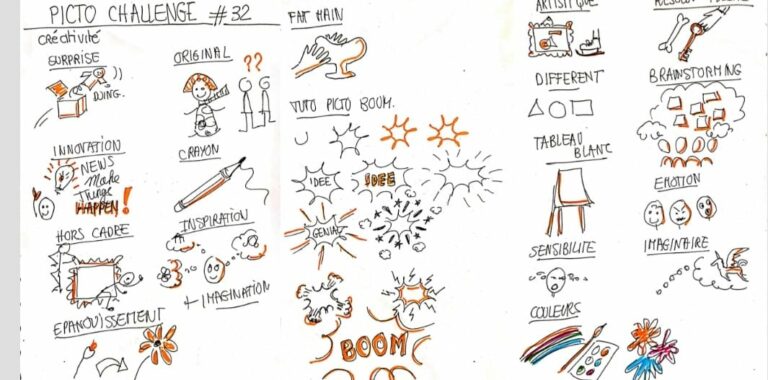 PICTO CHALLENGE #32
Créativité
SURPRISE
DOING.
ORIGINAL
??
INNOVATION
NEWS
Make
Things
HAPPEN!
CRAYON
HORS CADRE
INSPIRATION
+ IMAGINATION
EPANOUISSEMENT
FAIT MAIN
TUTO PICTO BOOM.
IDEE
IDEE
GENIAL
BOOM
ARTISTIQUE
DIFFERENT
TABLEAU
BLANC
SENSIBILITE
COULEURS
BRAINSTORMING
EMOTION
IMAGINAIRE